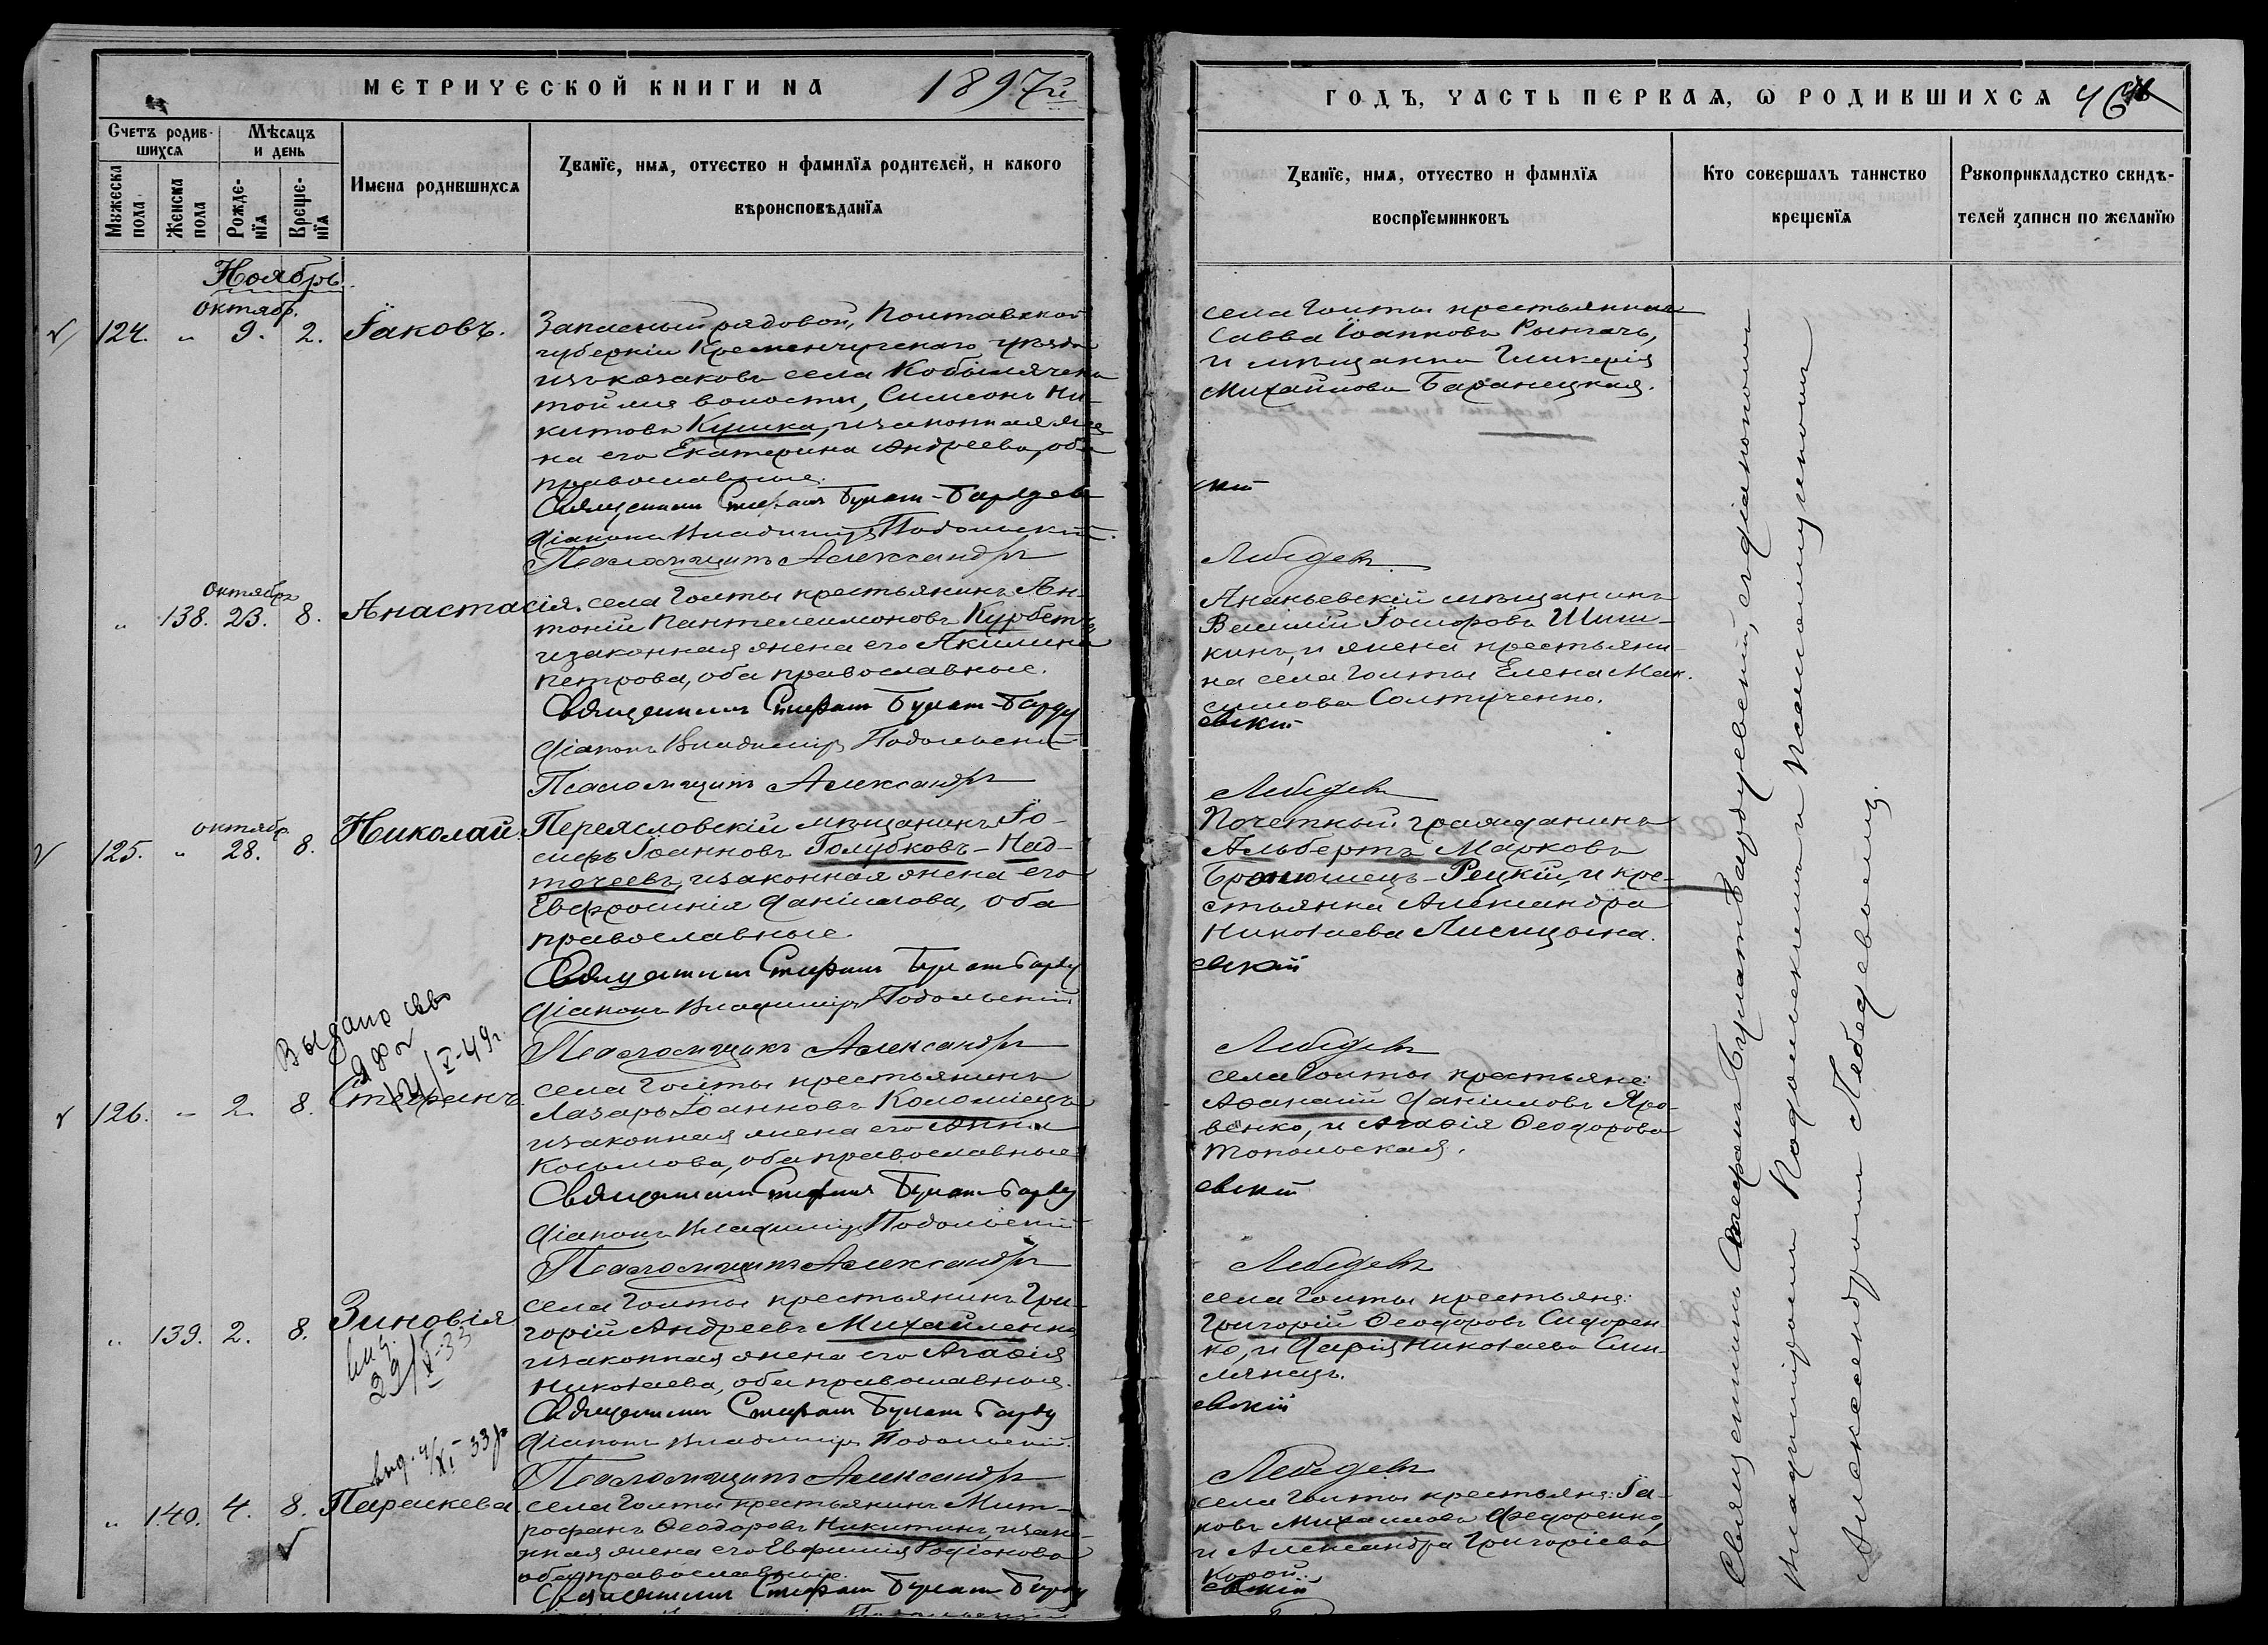 МЕТРИЧЕСКОЙ КНИГИ НА 1897й
Счетъ родившихся
Мѣсяцъ и день
Мужеска пола
Женска пола
Рожденїя
Крещенїя
Имена родившихся
Званїе, имя, отчество и фамилїя родителей, и какого
вѣроисповѣданїя
Ноябрь.
октябр.
124. " 9. 2. Іаковъ.
Запасный рядовой, Полтавской
губерніи Кременчугскаго уѣзда
изъ козаковъ села
волости, Симеонъ Ни-
китовъ и законная же-
на его Екатерина Андреева, оба
православные.
Священникъ Стефанъ Булат-Бардуев
Діаконъ Владиміръ Подольскій.
Псаломщикъ Александръ
октября
" 138. 23. 8. Анастасія.
села Голты крестьянинъ Ан-
тоній Пантелеимоновъ Курбетъ,
и законная жена его Акилина
Петрова, оба православные.
Священникъ Стефан Булат-Барду
Діаконъ Владиміръ Подольскій
Псаломщикъ Александръ
октября
125. " 28. 8. Николай.
Переясловскій мѣщанинъ Іо-
сифъ Іоанновъ Голубковъ-Над-
точеевъ, и законная жена его
Евфросинія Даніилова, оба
православные.
Священник Стефан Булат Барду
Діаконъ Владиміръ Подольскій
Псаломщикъ Александръ
Выдано свв
V-49г.
126. " 2. 8. Стефанъ.
села Голты крестьянинъ
Лазарь Іоанновъ Коломіецъ
и законная жена его Анна
Косьмова, оба православные
Священник Стефан Булат Барду
Діаконъ Владиміръ Подольскій
Псаломщикъ Александръ
" 139. 2. 8. Зиновія
29/X-33
села Голты крестьянинъ Гри-
горій Андреевъ Михайленко
и законная жена его Агафія
Николаева, оба православные.
Священник Стефан Булат Барду
Діаконъ Владиміръ Подольскій.
Псаломщикъ Александръ
вид. 4/XI 33р
" 140. 4. 8. Параскева
села Голты крестьянинъ Мит-
рофанъ Ѳеодоровъ Никитинъ, и закон-
ная жена его Евфимія Родіонова
оба православные.
Священник Стефан Булат Барду
ГОДЪ, ЧАСТЬ ПЕРВАЯ, Ѡ РОДИВШИХСЯ 46
Званїе, имя, отчество и фамилїя
воспрїемниковъ
Кто совершалъ таинство
крещенїя
Рукоприкладство свидѣ-
телей записи по желанїю
села Голты крестьянинъ
Савва Іоанновъ
и мѣщанка Гликерія
Михайлова Баранецкая.
кій
Лебедевъ
Ананьевскій мѣщанинъ
Василій Іосифовъ Шиш-
кинъ, и жена крестьяни-
на села Голты Елена Мак-
симова Солтученко.
евскій
Лебедевъ
Почетный гражданинъ
Альбертъ Марковъ
Рецкій, и кре-
стьянка Александра
Николаева Лисицына.
евскій
Лебедевъ
села Голты крестьяне:
Аѳанасій Даніиловъ Яро-
венко, и Агафія Ѳеодорова
Топольская.
евскій
Лебедевъ
села Голты крестьяне:
Григорій Ѳеодоровъ Сидорен-
ко, и Дарія Николаева Сми-
лянецъ.
евскій
Лебедевъ
села Голты крестьяне: Іа-
ковъ Михаиловъ Федоренко,
и Александра Григоріева
Корой.
евскій
Священникъ Стефанъ Булатъ-Бардуевскій, съ діакономъ
Владиміромъ Подольскимъ и Псаломщикомъ
Александромъ Лебедевымъ.